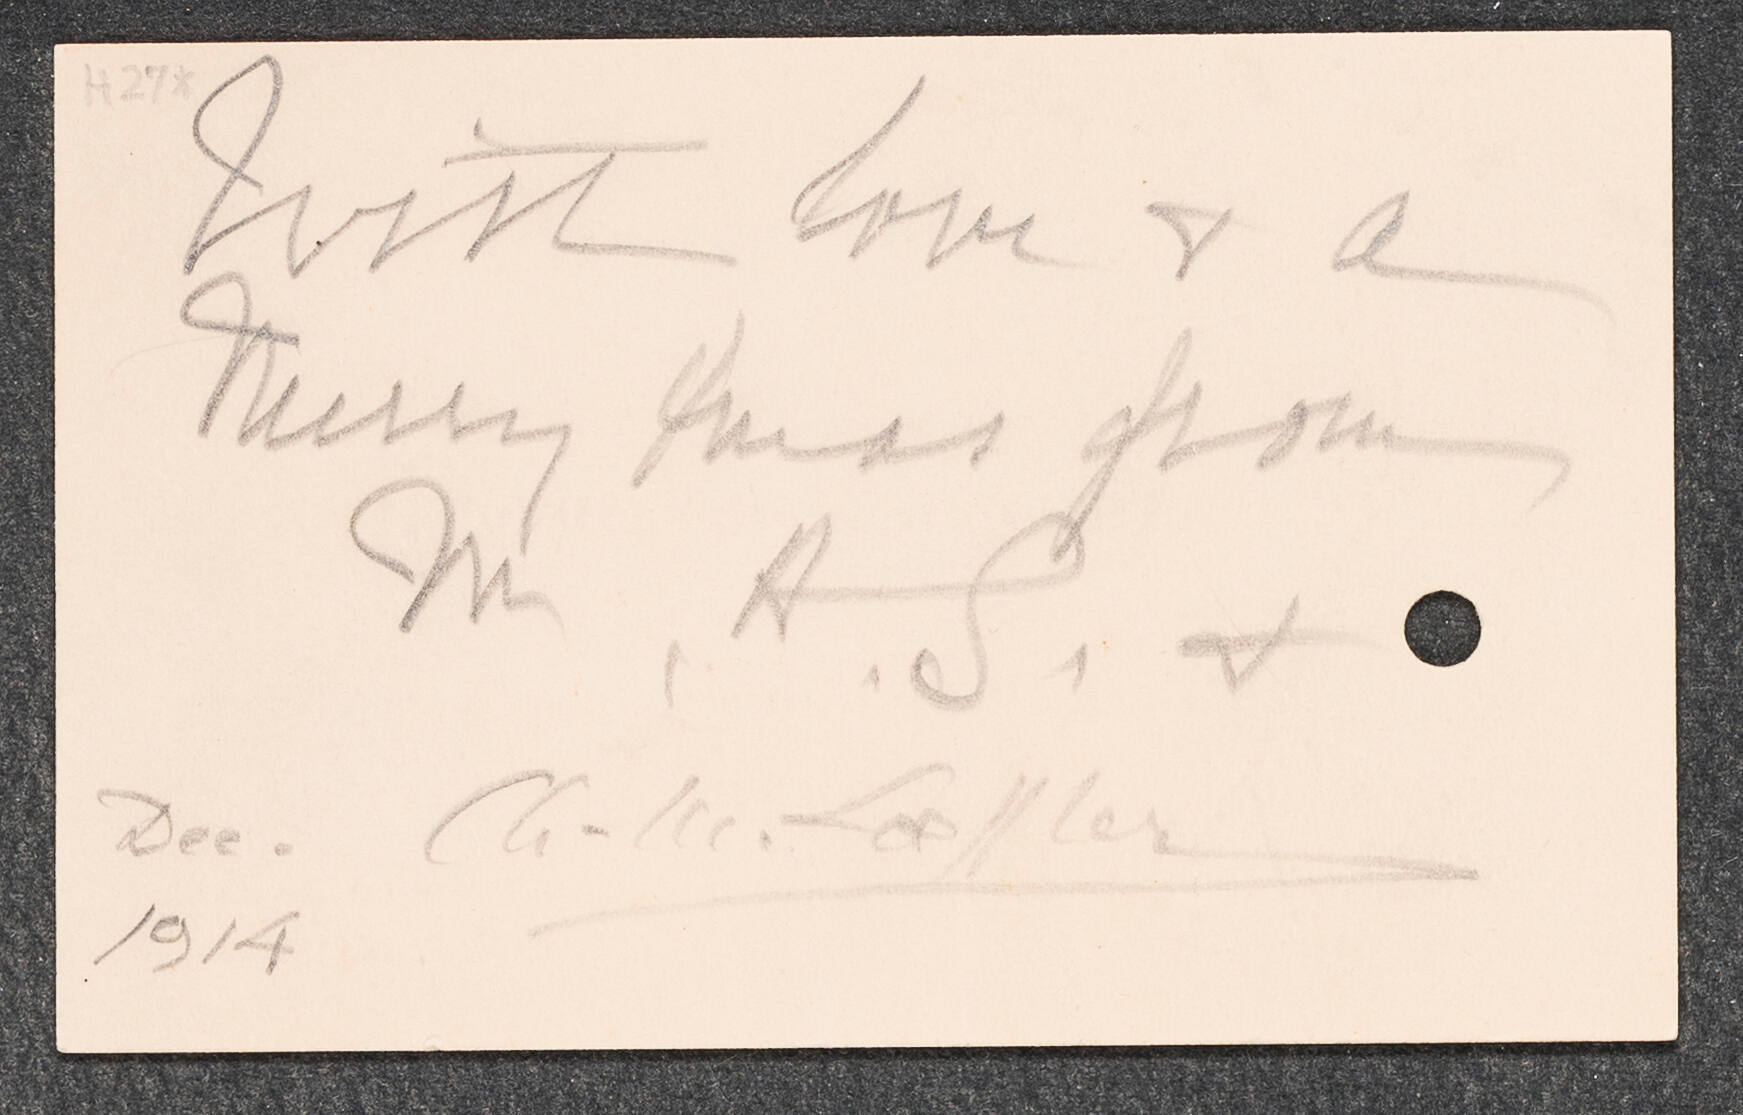 H27*
With love & a
Merry Xmas from
M. A. S. &
Ch. M. Loeffler
Dec.
1914